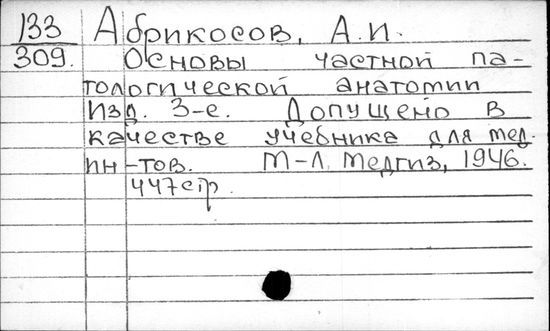 133 Абрикосов, А.И.
309. Основы частной па-
тологической анатомии
Изд. 3-е. Допущено в
качестве учебника для мед.
ин-тов. М-Л. Медгиз, 1946.
447стр.